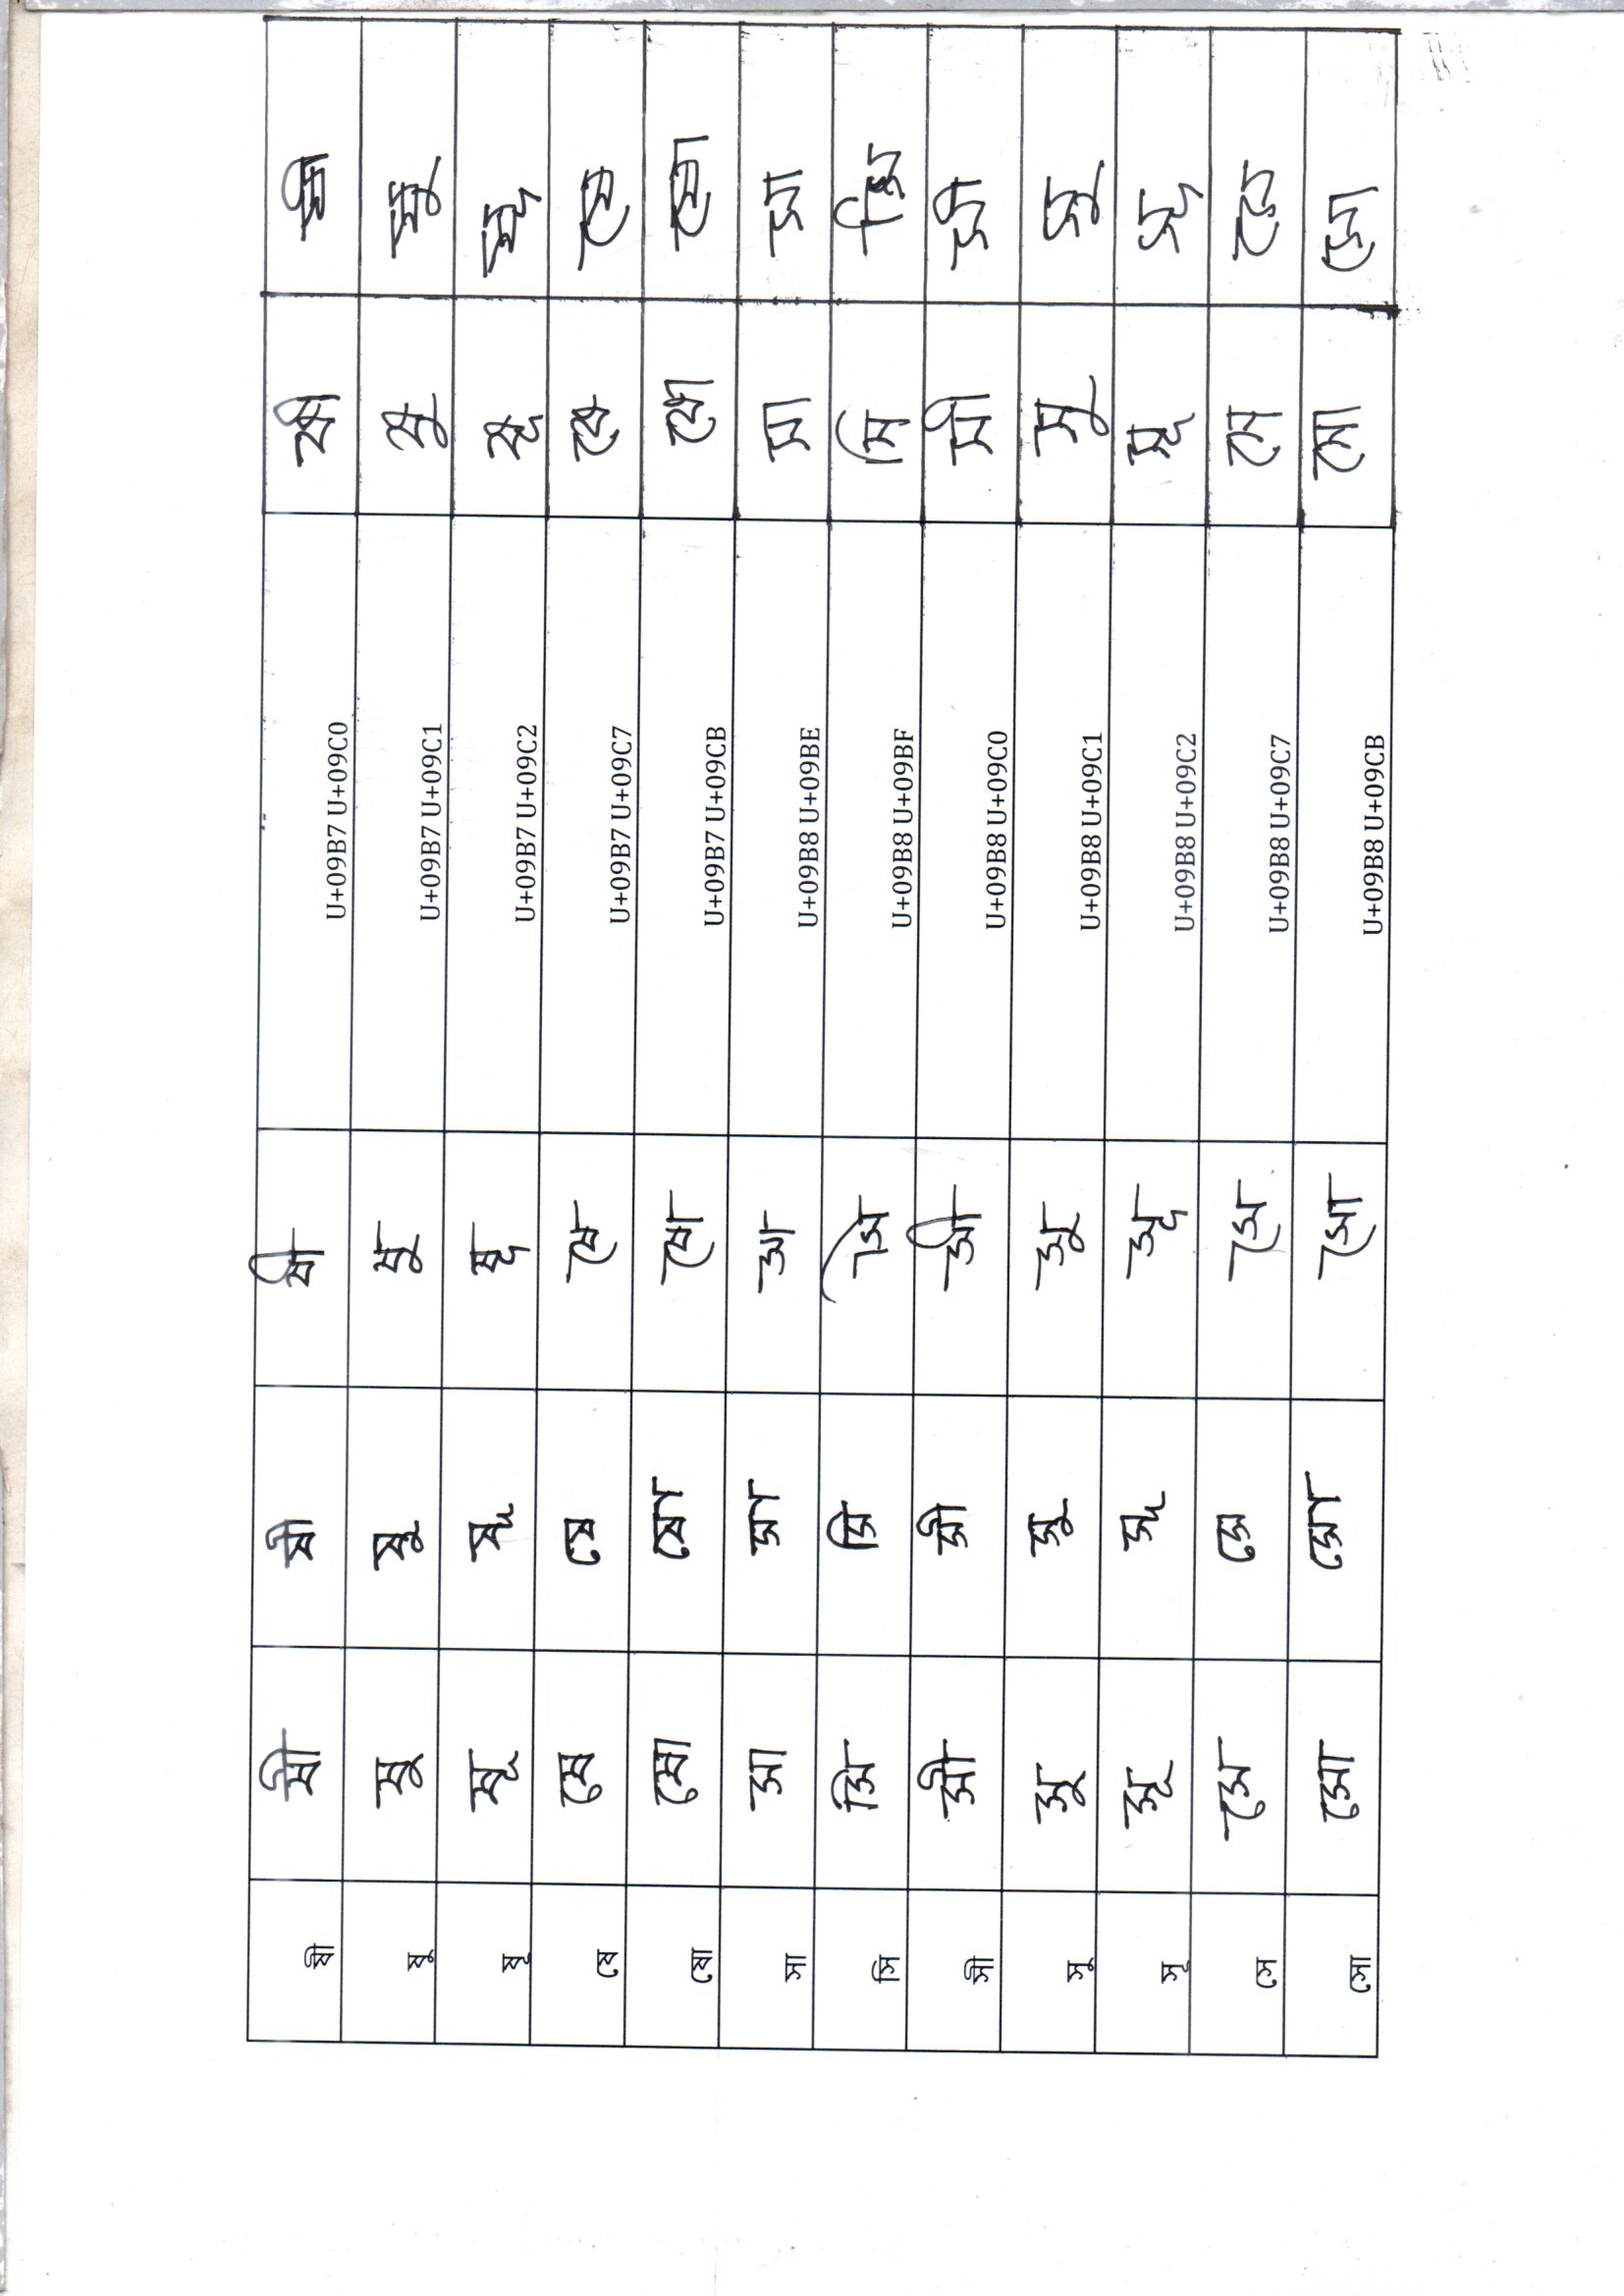 ষী ষী ষী ষী U+09B7 U+09C0 ষী ষী
ষু ষু ষু ষু U+09B7 U+09C1 ষু ষু
ষূ ষূ ষূ ষূ U+09B7 U+09C2 ষূ ষূ
ষে ষে ষে ষে U+09B7 U+09C7 ষে ষে
ষো ষো ষো ষো U+09B7 U+09CB ষো ষো
সা সা সা সা U+09B8 U+09BE সা সা
সি সি সি সি U+09B8 U+09BF সি সি
সী সী সী সী U+09B8 U+09C0 সী সী
সু সু সু সু U+09B8 U+09C1 সু সু
সূ সূ সূ সূ U+09B8 U+09C2 সূ সূ
সে সে সে সে U+09B8 U+09C7 সে সে
সো সো সো সো U+09B8 U+09CB সো সো